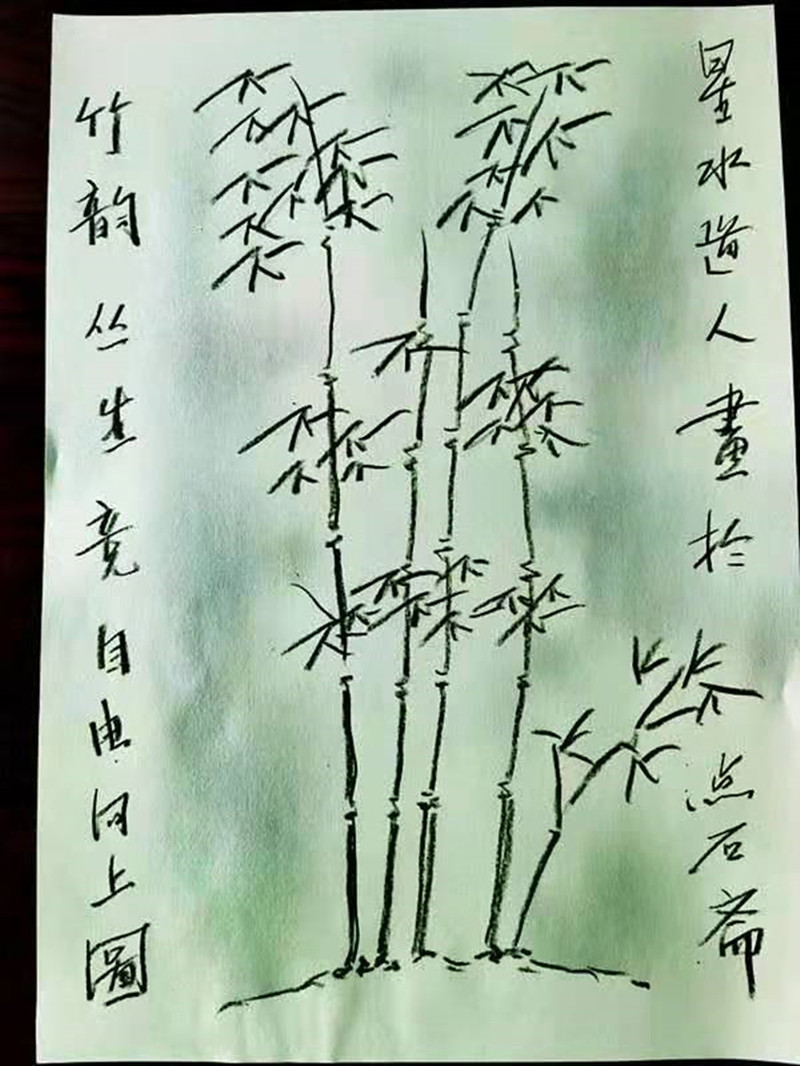 星水道人畫於点石斋
竹韵丛生竞自由向上圖